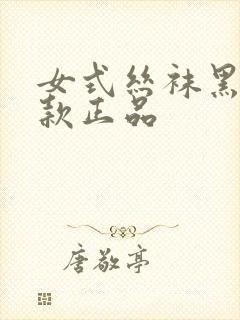 女式丝袜黑
款正品
唐敬亭